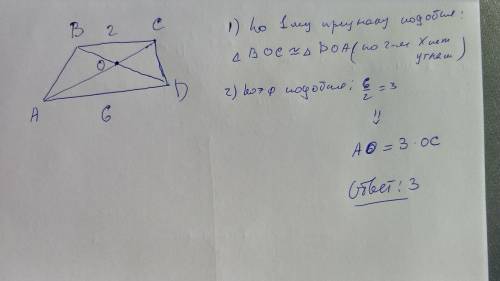 B 2 C
O
A 6 D
1) по 1му признаку подобия:
△ BOC ≅ △ DOA (по 2-м
углам)
2) коэф подобия: 6/2 = 3
⇓
AO = 3 · OC
Ответ: 3